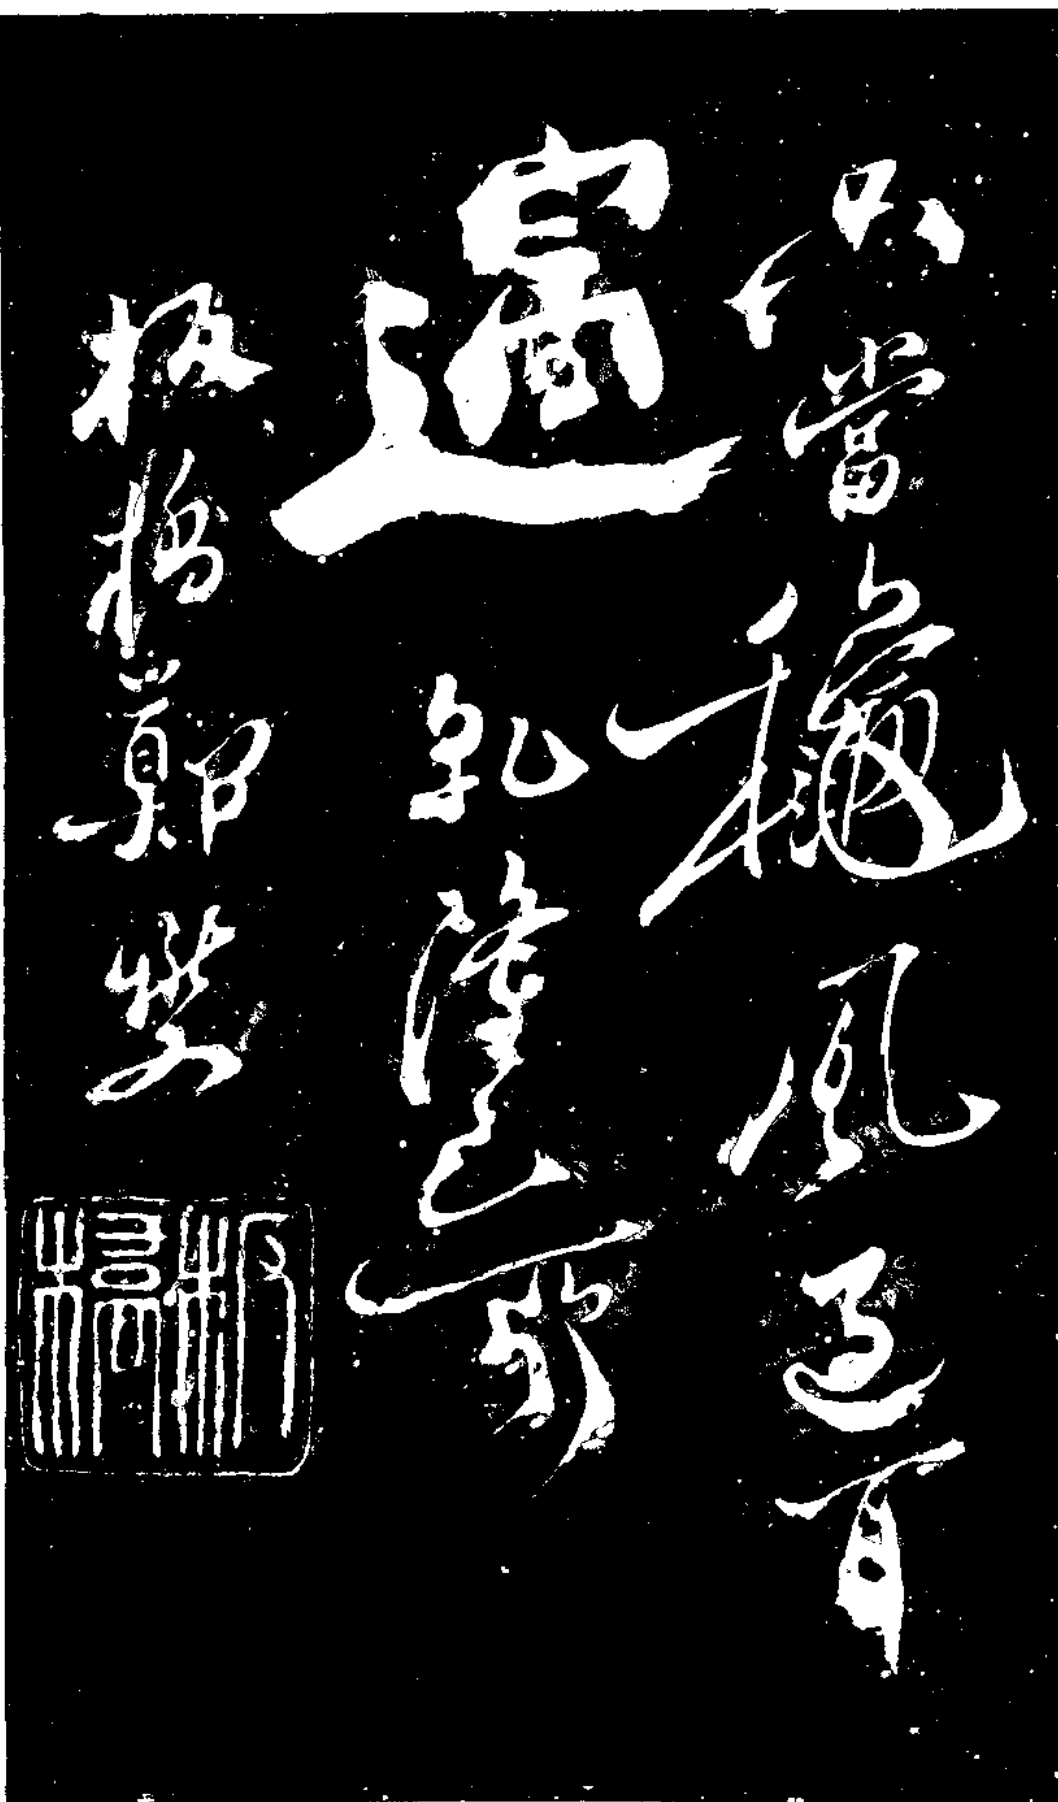 只當穐風過耳
邊 乾隆己卯
板橋鄭燮
板橋